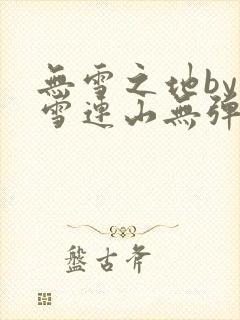 無雪之地by
雪連山無彈
盤古斧